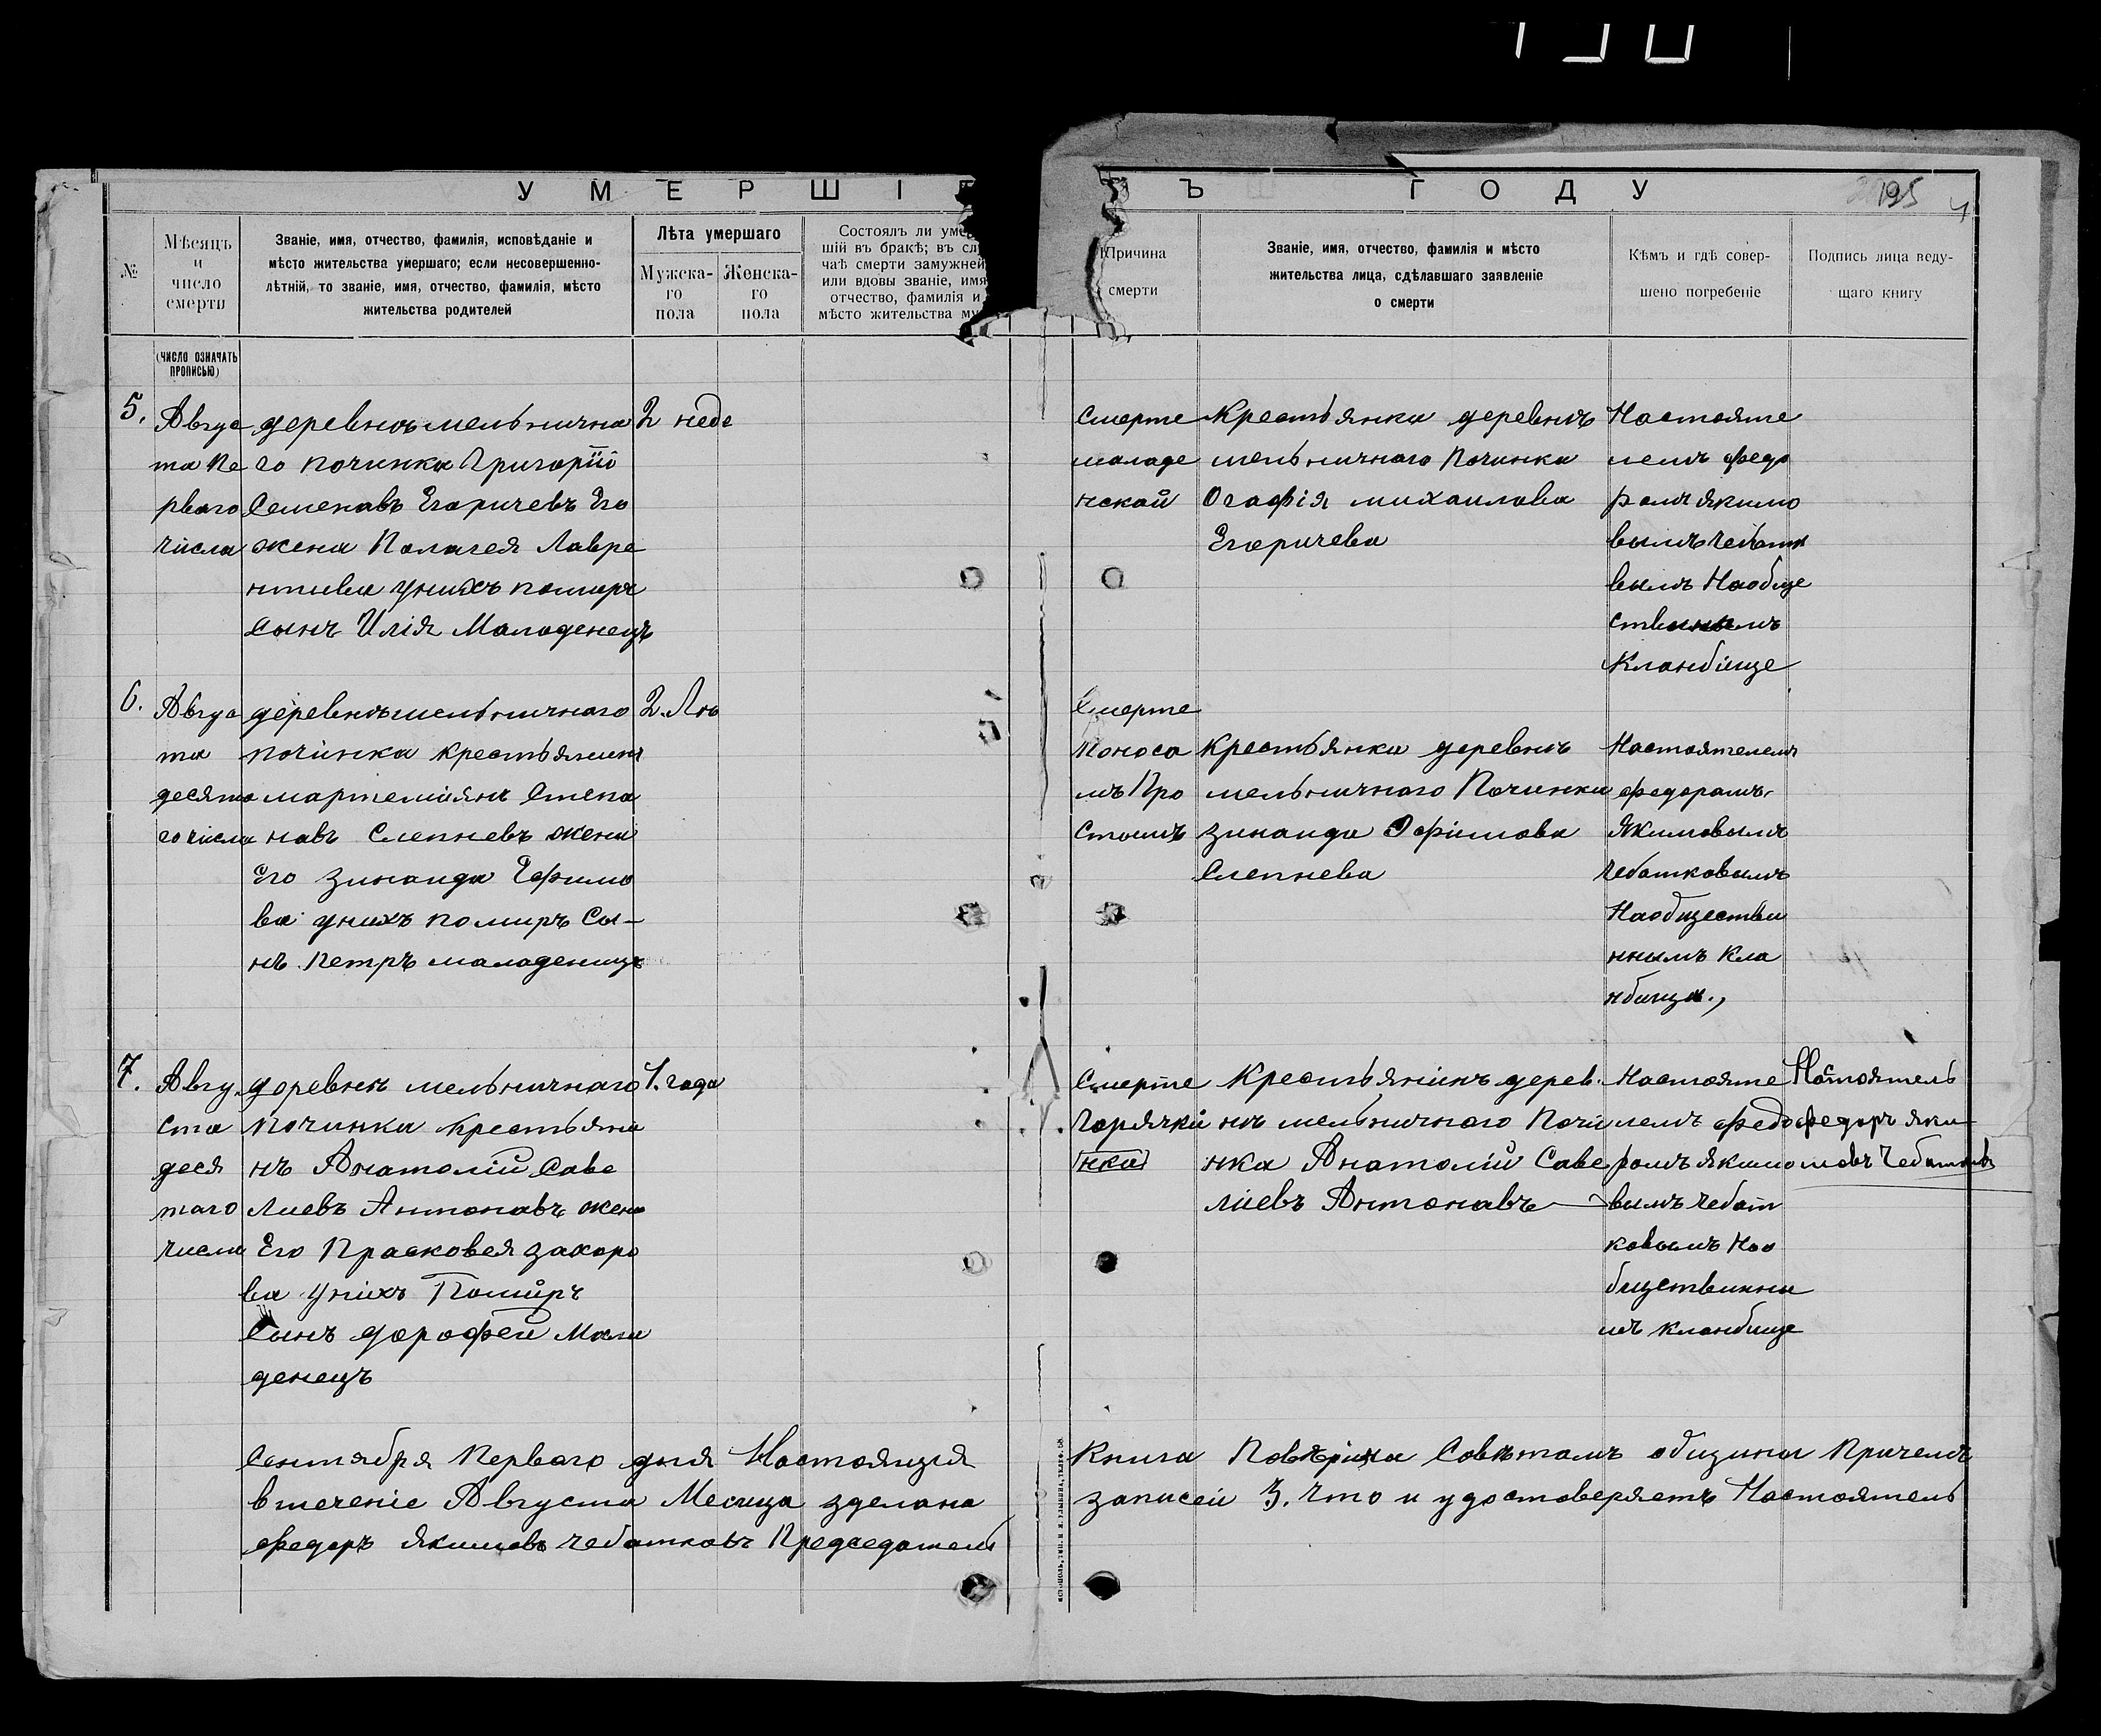 У М Е Р Ш І
Ъ Г О Д У
195
№
Мѣсяцъ
и
число
смерти
Званіе, имя, отчество, фамилія, исповѣданіе и
мѣсто жительства умершаго; если несовершенно-
лѣтній, то званіе, имя, отчество, фамилія, мѣсто
жительства родителей
Лѣта умершаго
Мужска-
го
пола
Женска-
го
пола
Состоялъ ли уме
шій въ бракѣ; въ сл
чаѣ смерти замужней
или вдовы званіе, имя
отчество, фамилія и
мѣсто жительства му
Причина
смерти
Званіе, имя, отчество, фамилія и мѣсто
жительства лица, сдѣлавшаго заявленіе
о смерти
Кѣмъ и гдѣ совер-
шено погребеніе
Подпись лица веду-
щаго книгу
(ЧИСЛО ОЗНАЧАТЬ
ПРОПИСЬЮ)
5.
Авгус
та Пе
рваго
числа
деревнѣ мельнична
го починка Григорій
Семенавъ Егаричевъ Его
жена Палагея Лавре
нтива унихъ помиръ
Сынъ Илія Маладенецъ
2 неде
Смерте
маладе
нской
Крестьянка деревнѣ
мельничнаго Починка
Огафія михаилава
Егоричева
Настояте
лемъ федо
ромъ якимо
вымъ чебатк
вымъ Наобще
ственымъ
Кланбіще
6.
Авгус
та
десята
го числа
деревнѣ мельничнаго
починка крестьянинъ
мартемиянъ Степа
навъ Слепневъ жена
Его зинаида Ефимо
ва унихъ помиръ Сы-
нъ Петръ маладеницъ
2. Лѣ
Смерте
Поноса
мъ Про
стымъ
Крестьянка деревнѣ
мельничнаго Починка
зинаида Эфимова
Слепнева
Настоятелемъ
федорамъ
Якимовымъ
Чебатковымъ
Наобществи
ннымъ Кла
нбища.,
7.
Авгу
ста
деся
таго
числа
деревнѣ мельничнаго
починка крестьяни
нъ Анатолій Саве
лиевъ Антонавъ жена
Его Прасковея захаро
ва унихъ Помиръ
Сынъ дорофей Мала
денецъ
1. года
Смерте
Горячки
нка
Крестьянинъ дерев
нѣ мельничного Почи
нка Анатолій Саве
лиевъ Антонавъ
Настояте
лемъ федо
ромъ якимо
вымъ чебат
ковымъ Нао
бществинны
мъ кланбище
Настоятель
федоръ Яки
мовъ Чебатковъ
Сентября Перваго дня Настоящія
втеченіе Августа Месяца зделана
федоръ Якимовъ чебатковъ Председатель
Книга Повѣріна Совѣтамъ общины Причемъ
записей 3. Что и удостоверяетъ Настоятель